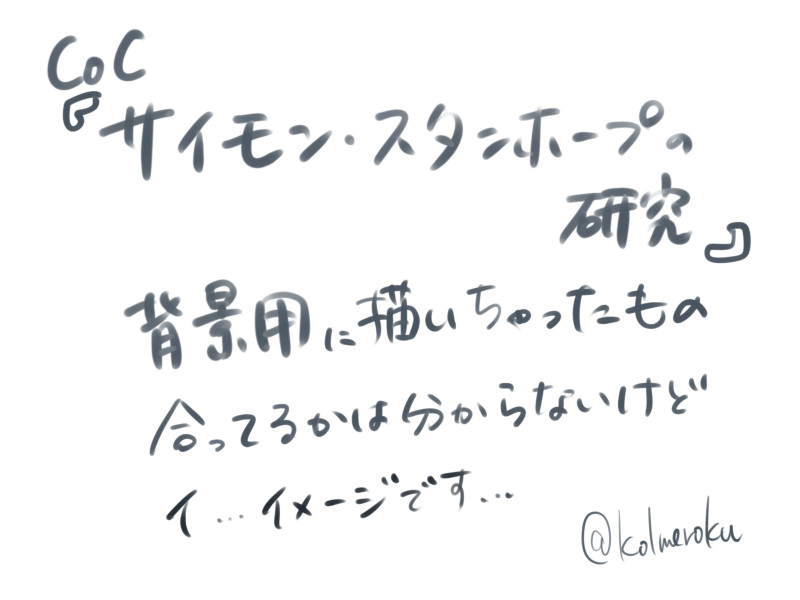 CoC
『サイモン・スタンホープの
研究』
背景用に描いちゃったもの
合ってるかは分からないけど
イ…イメージです…
@kolmeroku